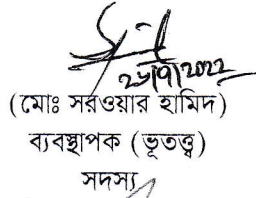 ২৮/৭/2022
(মোঃ সরওয়ার হামিদ)
ব্যবস্থাপক (ভূতত্ত্ব)
সদস্য